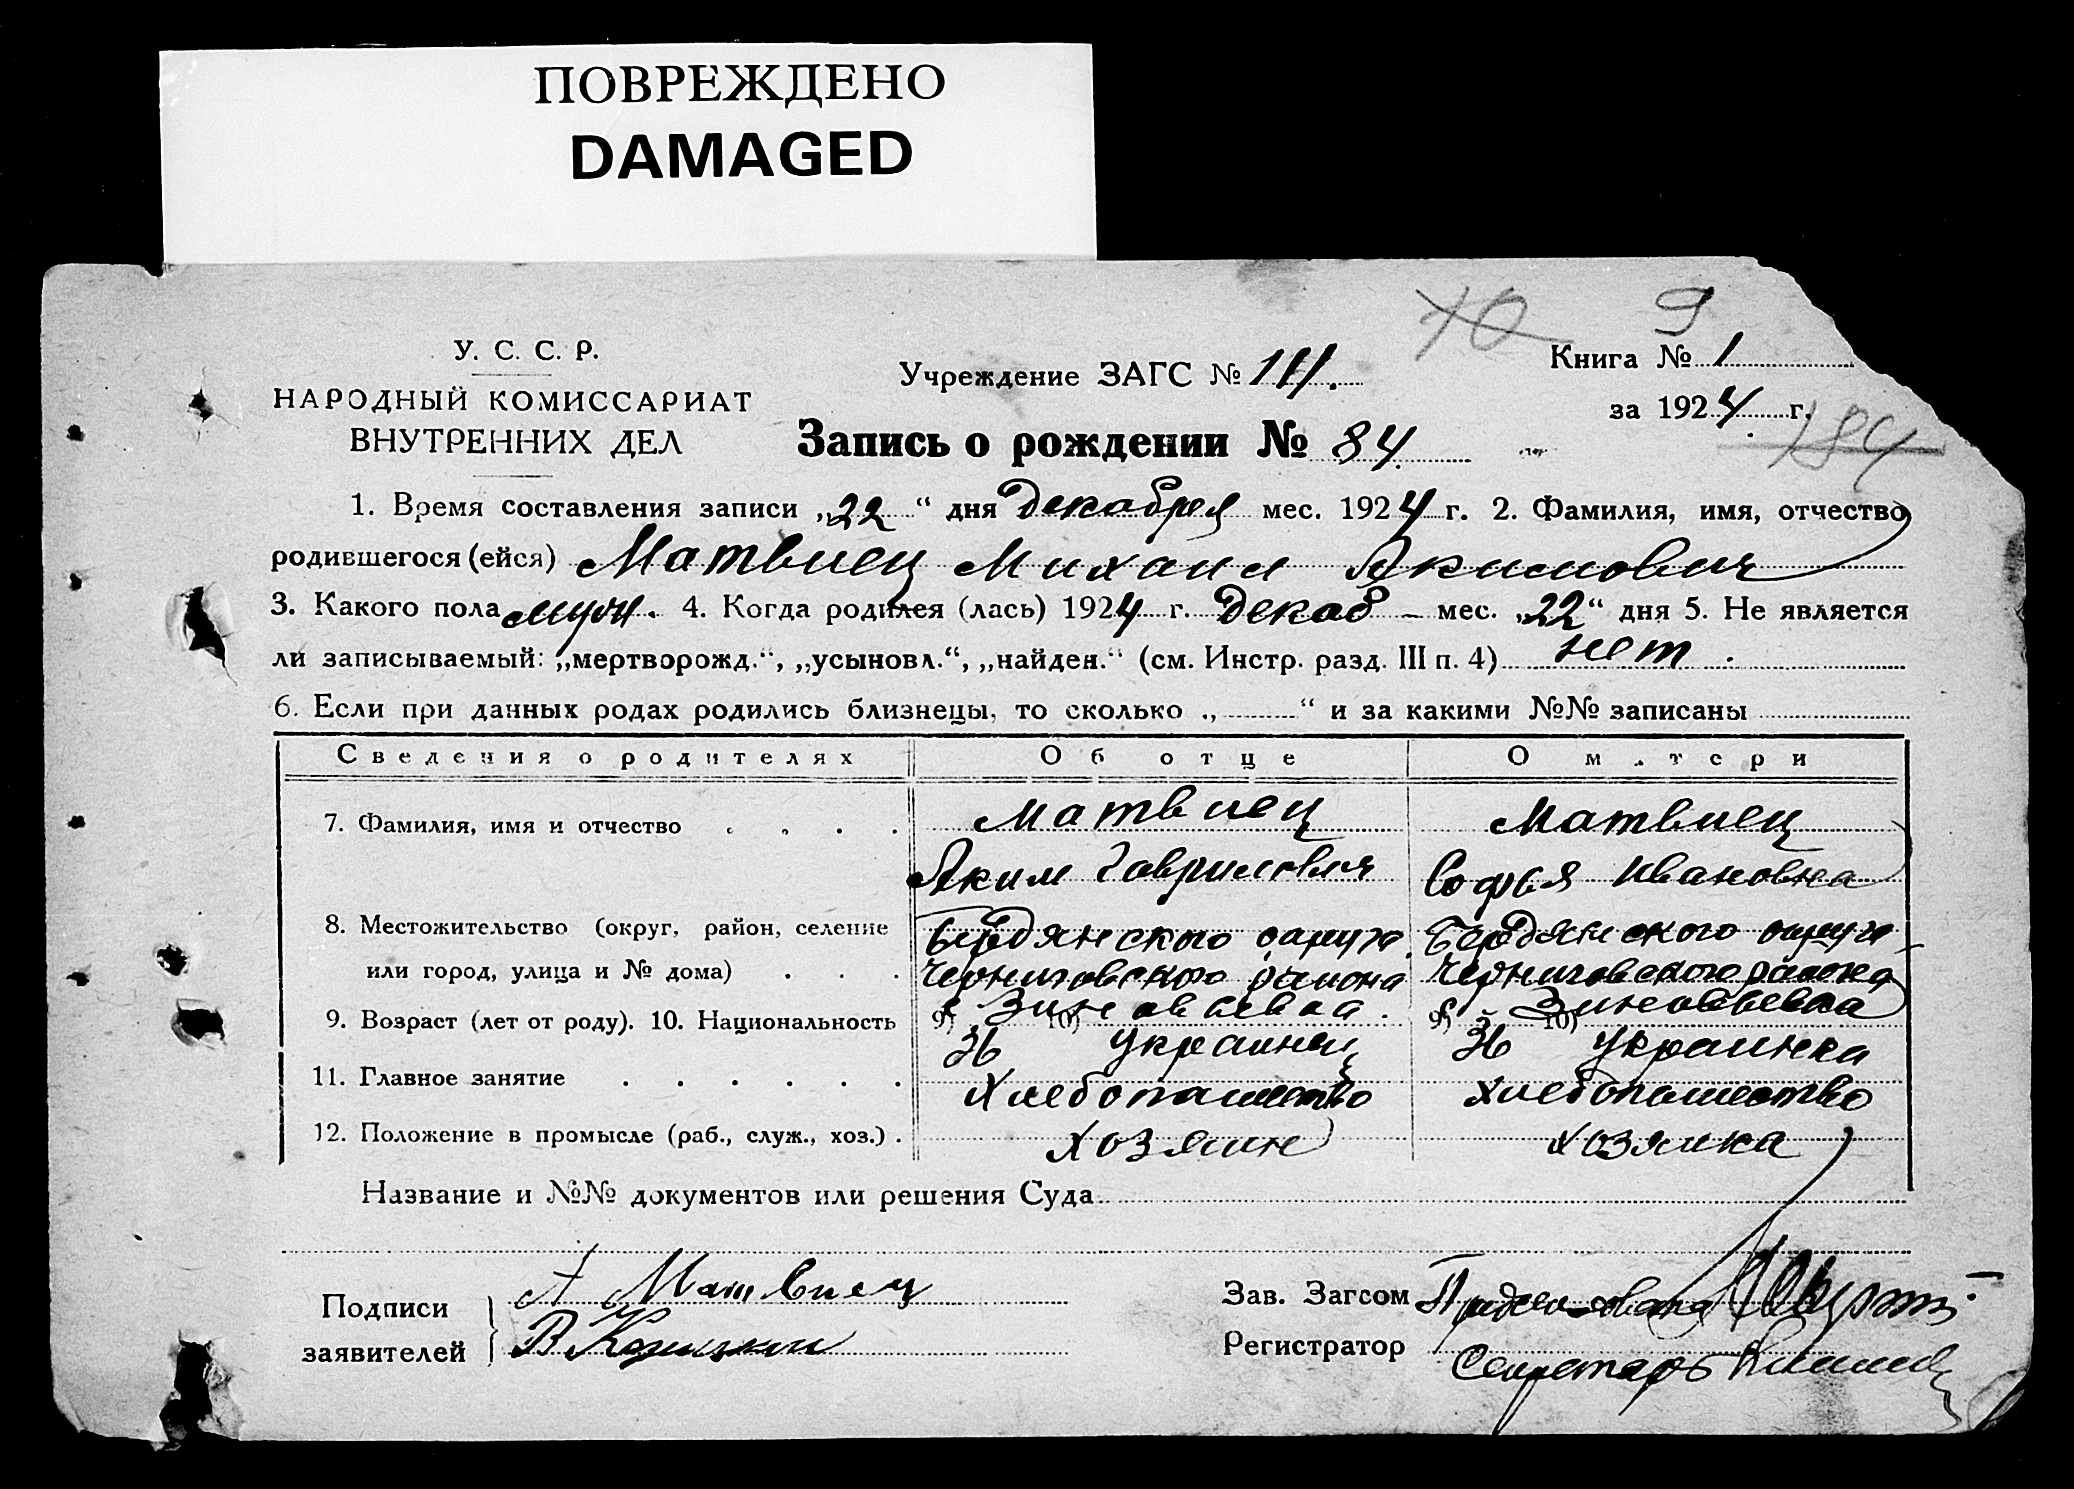 ПОВРЕЖДЕНО
DAMAGED
10 9
У. С. С. Р.
НАРОДНЫЙ КОМИССАРИАТ
ВНУТРЕННИХ ДЕЛ
Учреждение ЗАГС №
Книга № 1
за 1924 г.
184
Запись о рождении № 84
1. Время составления записи „22“ дня Декабря мес. 1924 г. 2. Фамилия, имя, отчество
родившегося (ейся) Матвиец Михаил Якимович
3. Какого пола муж. 4. Когда родился (лась) 1924 г. Декаб – мес. „22“ дня 5. Не является
ли записываемый: „мертворожд.“, „усыновл.“, „найден.“ (см. Инстр. разд. III п. 4) нет.
6. Если при данных родах родились близнецы, то сколько „ “ и за какими №№ записаны
Сведения о родителях Об отце О матери
7. Фамилия, имя и отчество Матвиец Матвиец
Яким Гаврилович Софья Ивановна
8. Местожительство (округ, район, селение Бердянского округа Бердянского округа
или город, улица и № дома) Черниговского района Черниговского района
с Зиновьевка. с Зиновьевка
9. Возраст (лет от роду). 10. Национальность 9) 10) 9) 10)
36 Украинец 36 Украинка
11. Главное занятие Хлебопашество Хлебопашество
12. Положение в промысле (раб., служ., хоз.) хозяин хозяйка
Название и №№ документов или решения Суда
Подписи заявителей А Матвиец
В
Зав. Загсом
Регистратор Секретарь